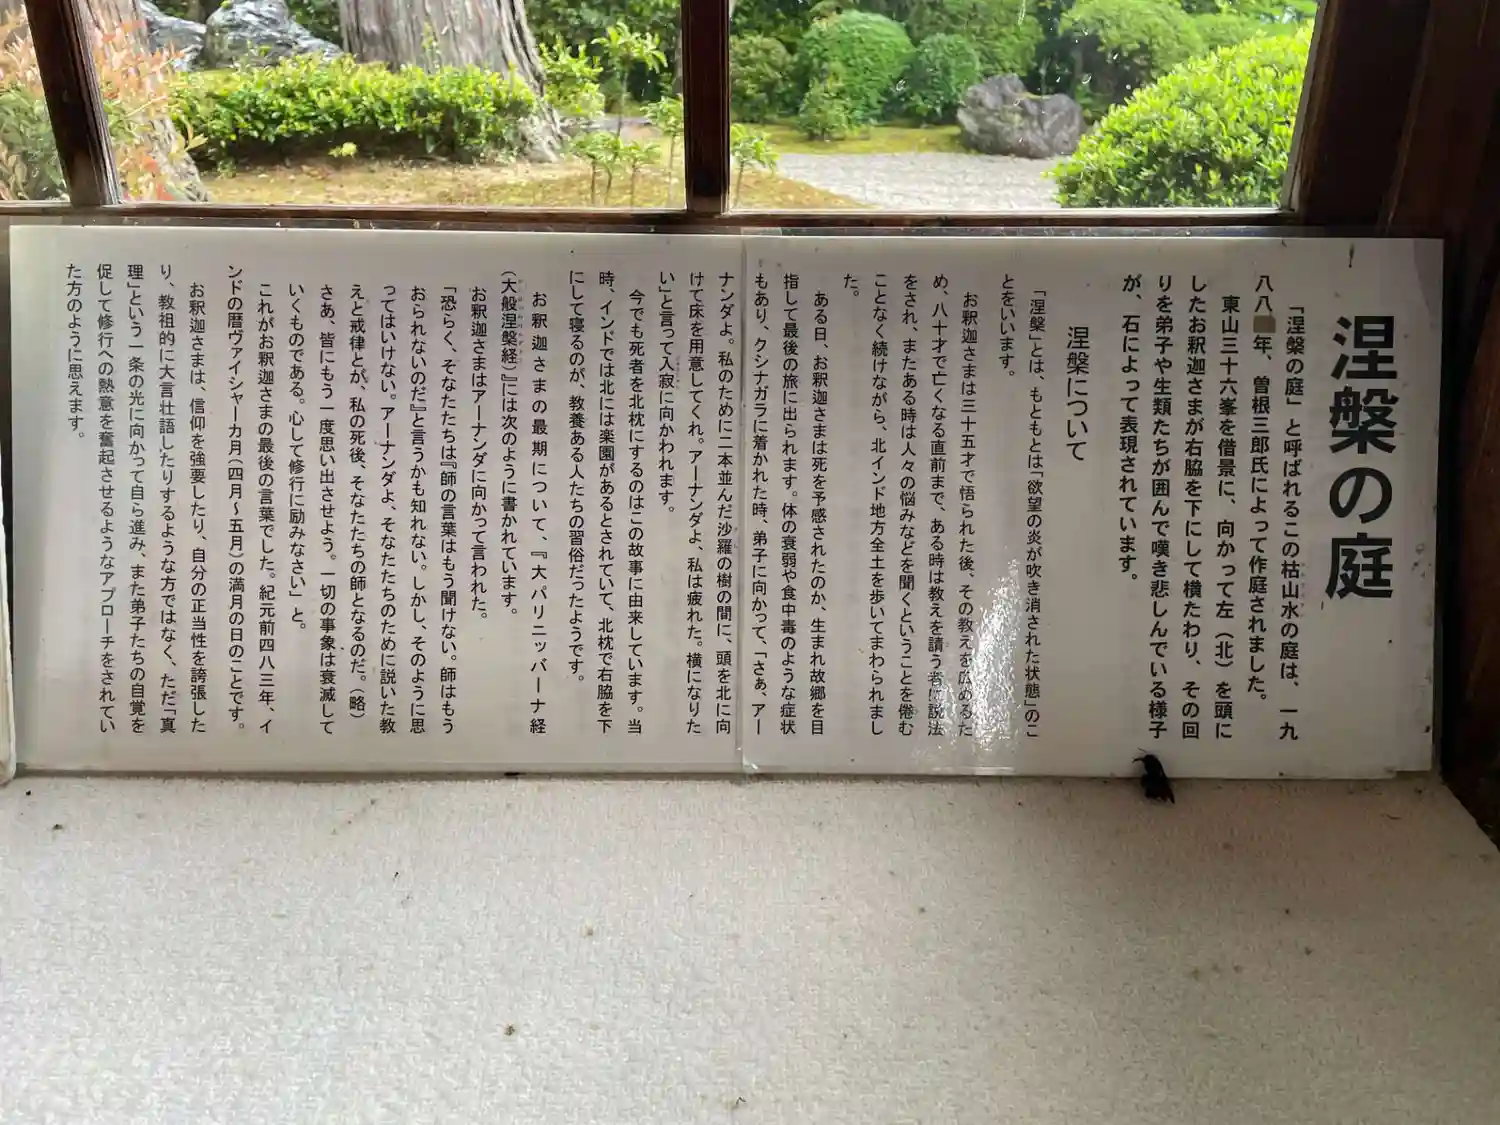 涅槃の庭
「涅槃の庭」と呼ばれるこの枯山水の庭は、一九
八八年、曽根三郎氏によって作庭されました。
東山三十六峯を借景に、向かって左（北）を頭に
したお釈迦さまが右脇を下にして横たわり、その回
りを弟子や生類たちが囲んで嘆き悲しんでいる様子
が、石によって表現されています。
涅槃について
「涅槃」とは、もともとは「欲望の炎が吹き消された状態」のこ
とをいいます。
お釈迦さまは三十五才で悟られた後、その教えを広めるた
め、八十才で亡くなる直前まで、ある時は教えを請う者に説法
をされ、またある時は人々の悩みなどを聞くということを倦む
ことなく続けながら、北インド地方全土を歩いてまわられまし
た。
ある日、お釈迦さまは死を予感されたのか、生まれ故郷を目
指して最後の旅に出られます。体の衰弱や食中毒のような症状
もあり、クシナガラに着かれた時、弟子に向かって、「さぁ、アー
ナンダよ。私のために二本並んだ沙羅の樹の間に、頭を北に向
けて床を用意してくれ。アーナンダよ、私は疲れた。横になりた
い」と言って入寂に向かわれます。
今でも死者を北枕にするのはこの故事に由来しています。当
時、インドでは北には楽園があるとされていて、北枕で右脇を下
にして寝るのが、教養ある人たちの習俗だったようです。
お釈迦さまの最期について、『大パリニッバーナ経
（大般涅槃経）』には次のように書かれています。
お釈迦さまはアーナンダに向かって言われた。
「恐らく、そなたたちは『師の言葉はもう聞けない。師はもう
おられないのだ』と言うかも知れない。しかし、そのように思
ってはいけない。アーナンダよ、そなたたちのために説いた教
えと戒律とが、私の死後、そなたたちの師となるのだ。（略）
さあ、皆にもう一度思い出させよう。一切の事象は衰滅して
いくものである。心して修行に励みなさい」と。
これがお釈迦さまの最後の言葉でした。紀元前四八三年、イ
ンドの暦ヴァイシャーカ月（四月～五月）の満月の日のことです。
お釈迦さまは、信仰を強要したり、自分の正当性を誇張した
り、教祖的に大言壮語したりするような方ではなく、ただ「真
理」という一条の光に向かって自ら進み、また弟子たちの自覚を
促して修行への熱意を奮起させるようなアプローチをされてい
た方のように思えます。